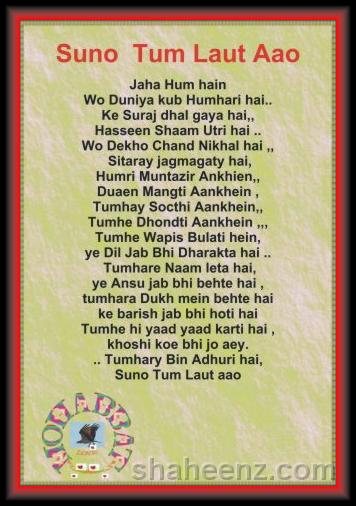 Suno Tum Laut Aao
Jaha Hum hain
Wo Duniya kub Humhari hai..
Ke Suraj dhal gaya hai,,
Hasseen Shaam Utri hai ..
Wo Dekho Chand Nikhal hai ,,
Sitaray jagmagaty hai,
Humri Muntazir Ankhien,,
Duaen Mangti Aankhein ,
Tumhay Socthi Aankhein,,
Tumhe Dhondti Aankhein ,,,
Tumhe Wapis Bulati hein,
ye Dil Jab Bhi Dharakta hai ..
Tumhare Naam leta hai,
ye Ansu jab bhi behte hai ,
tumhara Dukh mein behte hai
ke barish jab bhi hoti hai
Tumhe hi yaad yaad karti hai ,
khoshi koe bhi jo aey.
.. Tumhary Bin Adhuri hai,
Suno Tum Laut aao
MOHABBAT
shaheenz.com